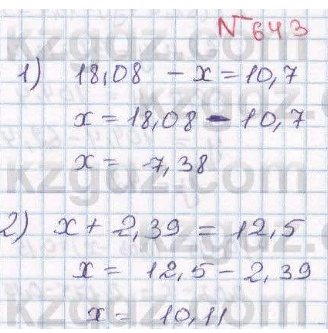 №643
1) 18,08 - x = 10,7
x = 18,08 - 10,7
x = 7,38
2) x + 2,39 = 12,5
x = 12,5 - 2,39
x = 10,11
kzgdz.com